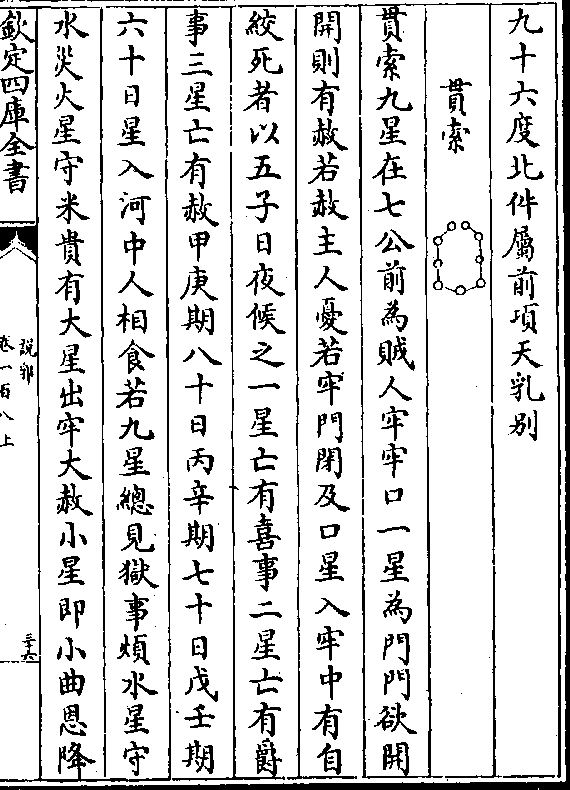 九十六度北件屬前項天乳别
貫索
貫索九星在七公前為賊人牢牢口一星為門門欲開
開則有赦若赦主人憂若牢門閉及口星入牢中有自
絞死者以五子日夜候之一星亡有喜事二星亡有爵
事三星亡有赦甲庚期八十日丙辛期七十日戊壬期
六十日星入河中人相食若九星總見獄事煩水星守
水災火星守米貴有大星出牢大赦小星即小曲恩降
欽定四庫全書
說郛
卷一百八上
三六